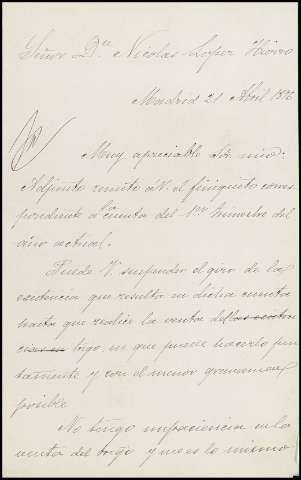 Señor Dn. Nicolas Lopez Hierro
Madrid 21 Abril 1876
Muy apreciable Sr. mio:
Adjunto remito á V. el finiquito corres
pondiente a la cuenta del 1er trimestre del
año actual.
Puede V. suspender el giro de la
existencia que resulta en dicha cuenta
hasta que realice la venta del
trigo, en que puede hacerlo jun
tamente y con el menor gravamen
posible
No tengo impaciencia en la
venta del trigo y no es lo mismo